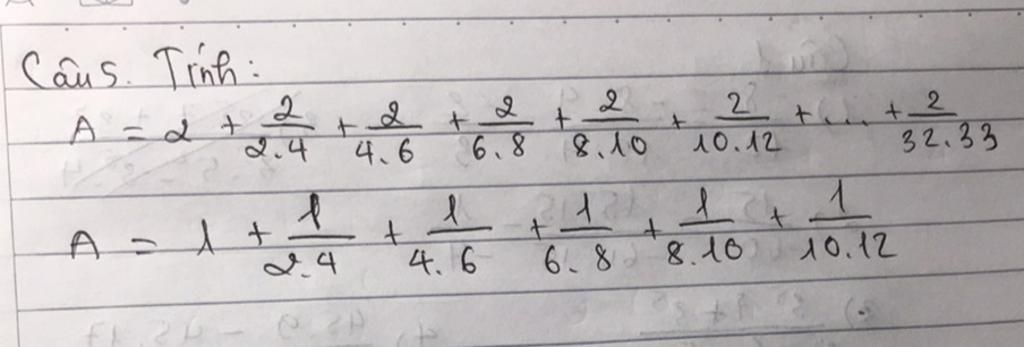 Câu 5. Tính:
A = 2 + 2/2.4 + 2/4.6 + 2/6.8 + 2/8.10 + 2/10.12 + ... + 2/32.33
A = 1 + 1/2.4 + 1/4.6 + 1/6.8 + 1/8.10 + 1/10.12